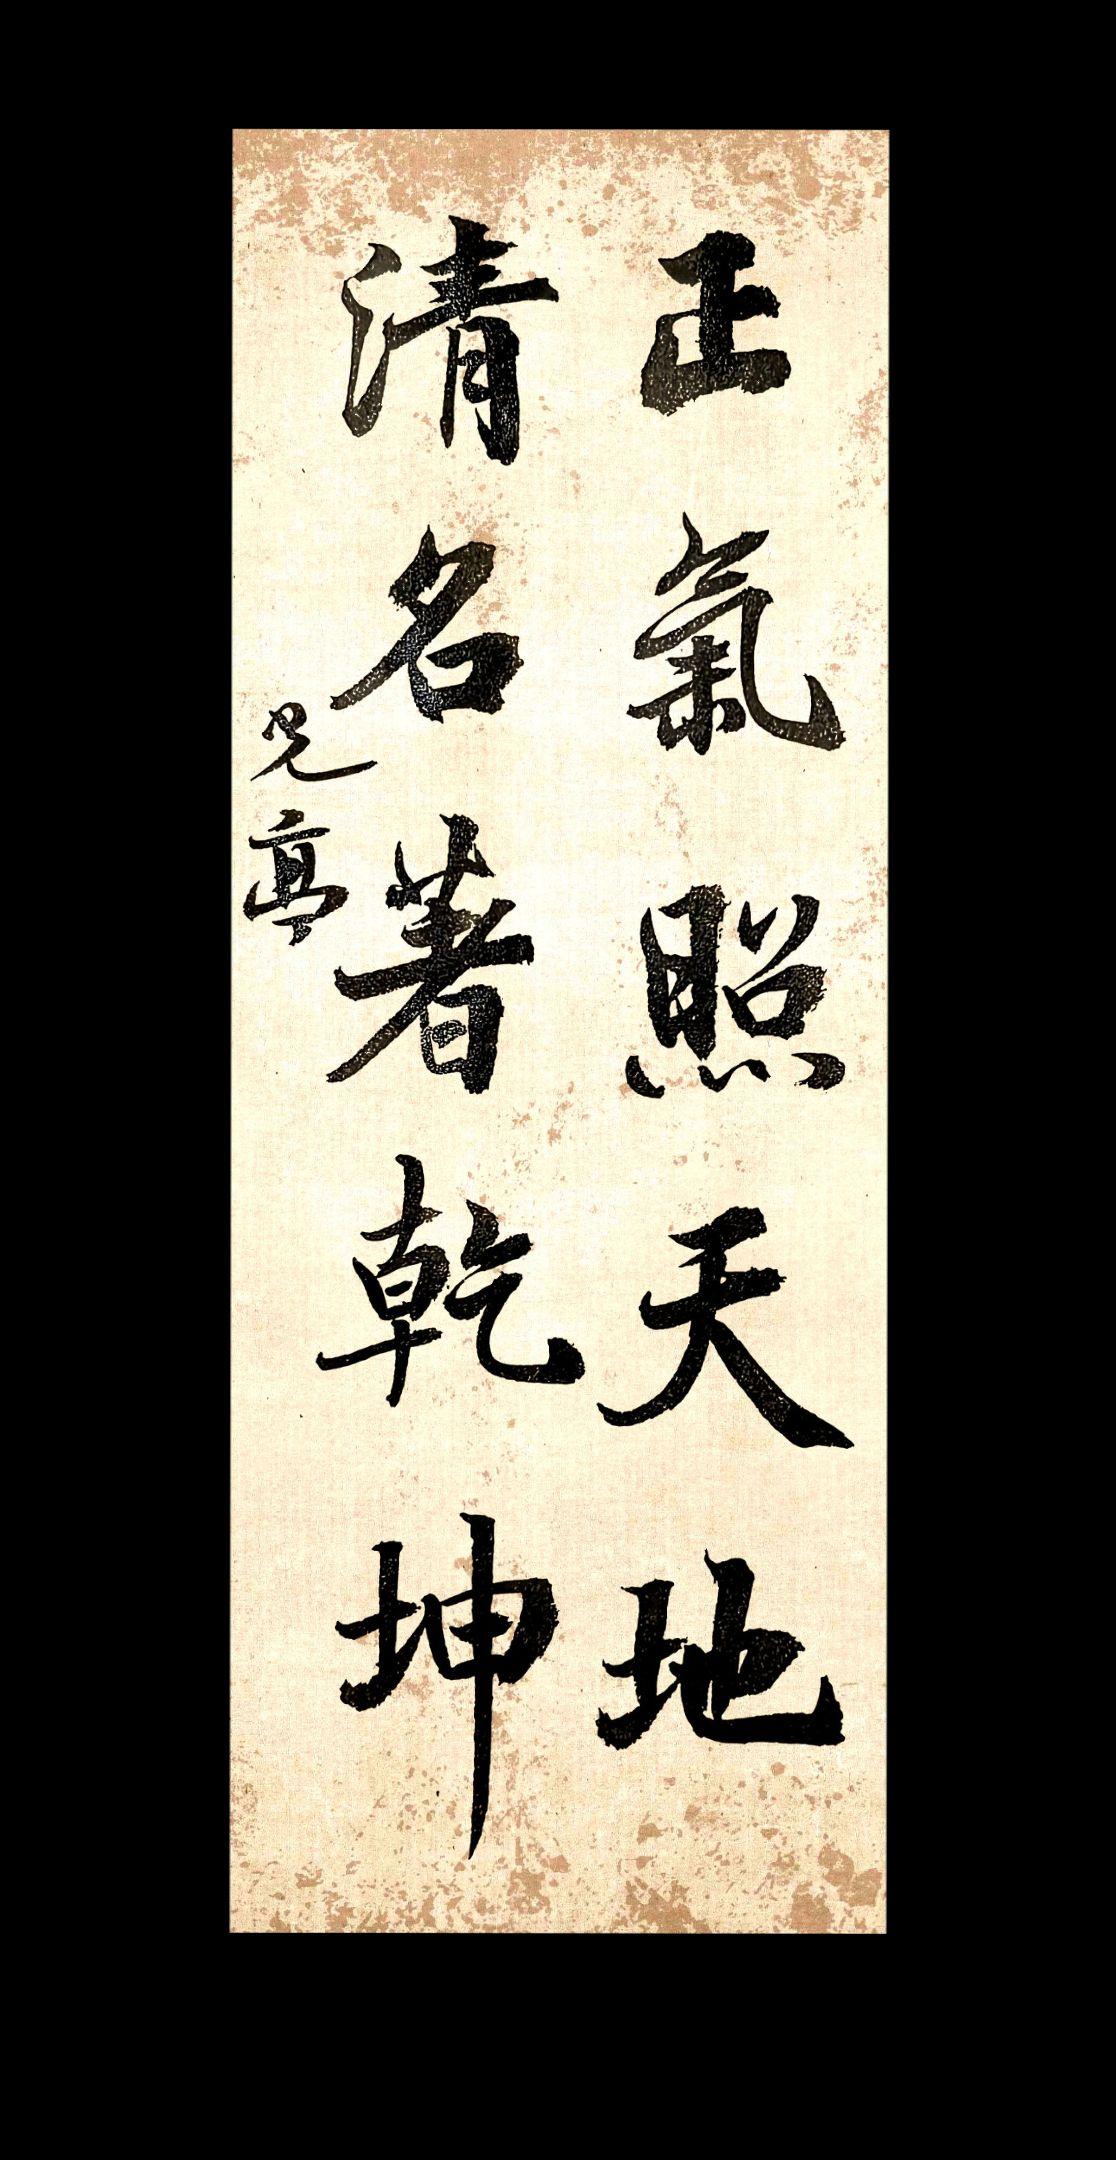 正氣照天地
清名著乾坤
兄亭